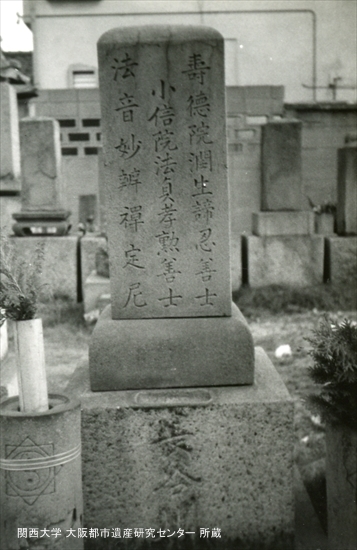 壽德院潤生諦忍善士
小信院法貝孝勲善士
法音妙辨禪定尼
関西大学 大阪都市遺産研究センター 所蔵